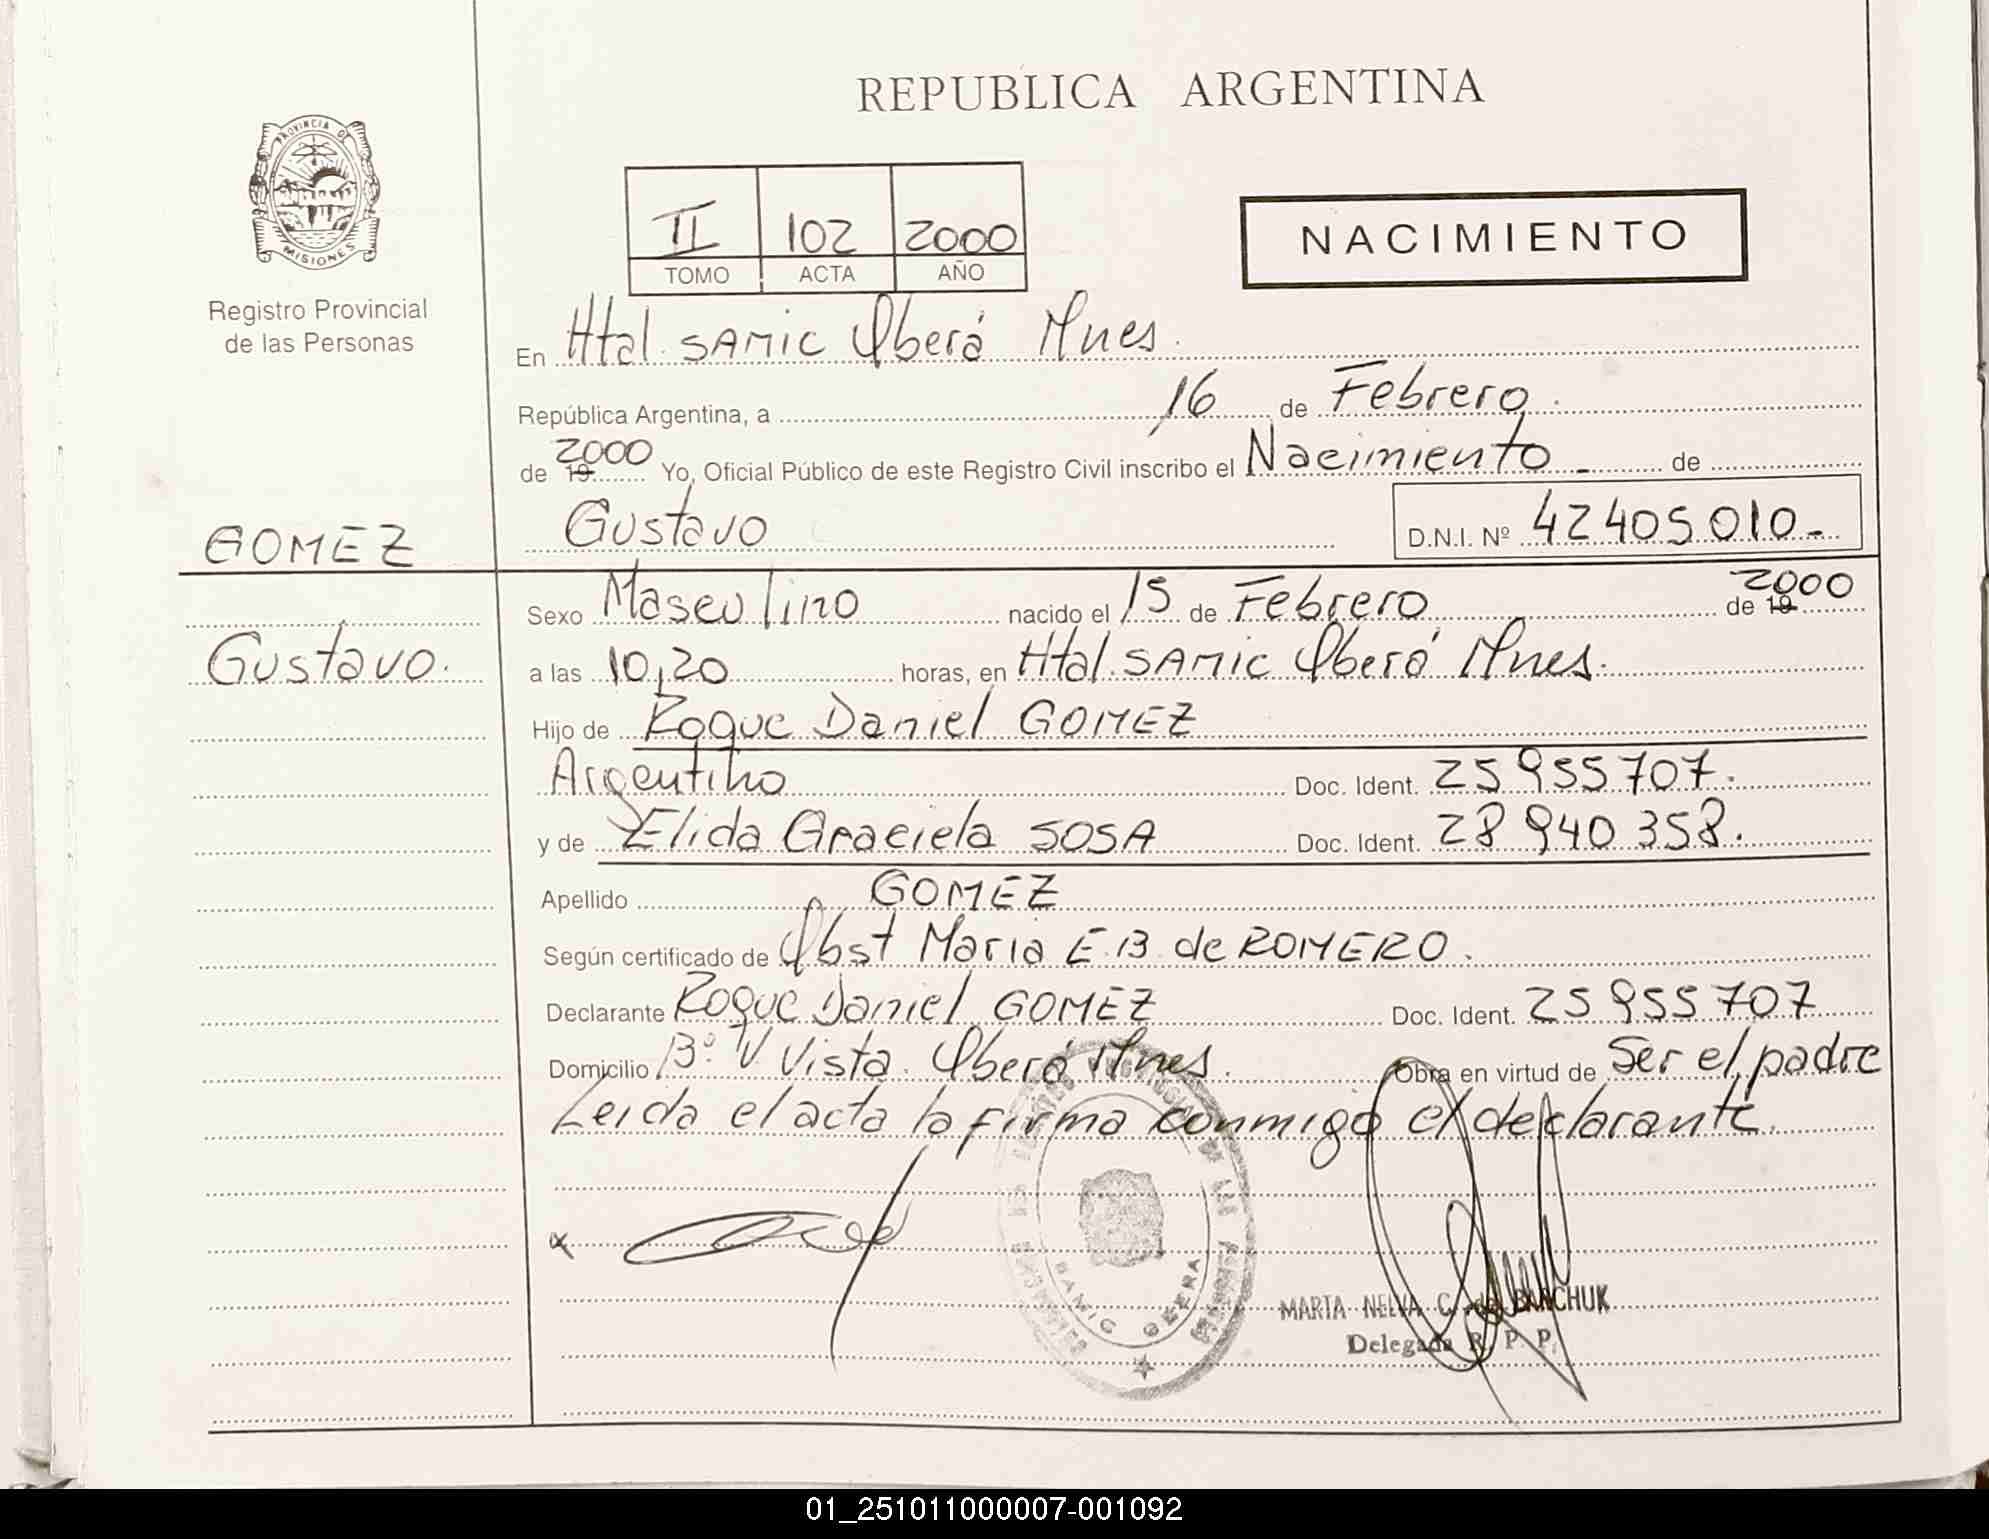 REPUBLICA ARGENTINA
PROVINCIA DE
MISIONES
Registro Provincial
de las Personas
II 102 2000
TOMO ACTA AÑO
NACIMIENTO
En Htal. SAMIC Oberá Mnes.
República Argentina, a 16 de Febrero.
de 19 2000 Yo, Oficial Público de este Registro Civil inscribo el Nacimiento de
GOMEZ
Gustavo D.N.I. Nº 42405010.-
Gustavo.
Sexo Masculino nacido el 15 de Febrero de 19 2000
a las 10,20 horas, en Htal. SAMIC Oberá Mnes.
Hijo de Roque Daniel GOMEZ
Argentino Doc. Ident. 25955707.
y de Elida Graciela SOSA Doc. Ident. 28940358.
Apellido GOMEZ
Según certificado de Obst Maria E.B. de ROMERO.
Declarante Roque Daniel GOMEZ Doc. Ident. 25955707
Domicilio Bº. V Vista. Oberá Mnes. Obra en virtud de Ser el padre
Leida el acta la firma conmigo el declarante.
x
SAMIC OBERA
MARTA NELVA C. de
Delegada R. P. P.
01_251011000007-001092